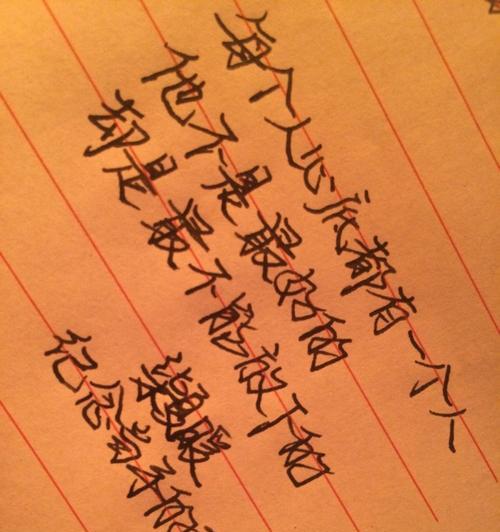 每个人心底都有一个人
他不是最好的
却是最不能放下的
纪念当年的